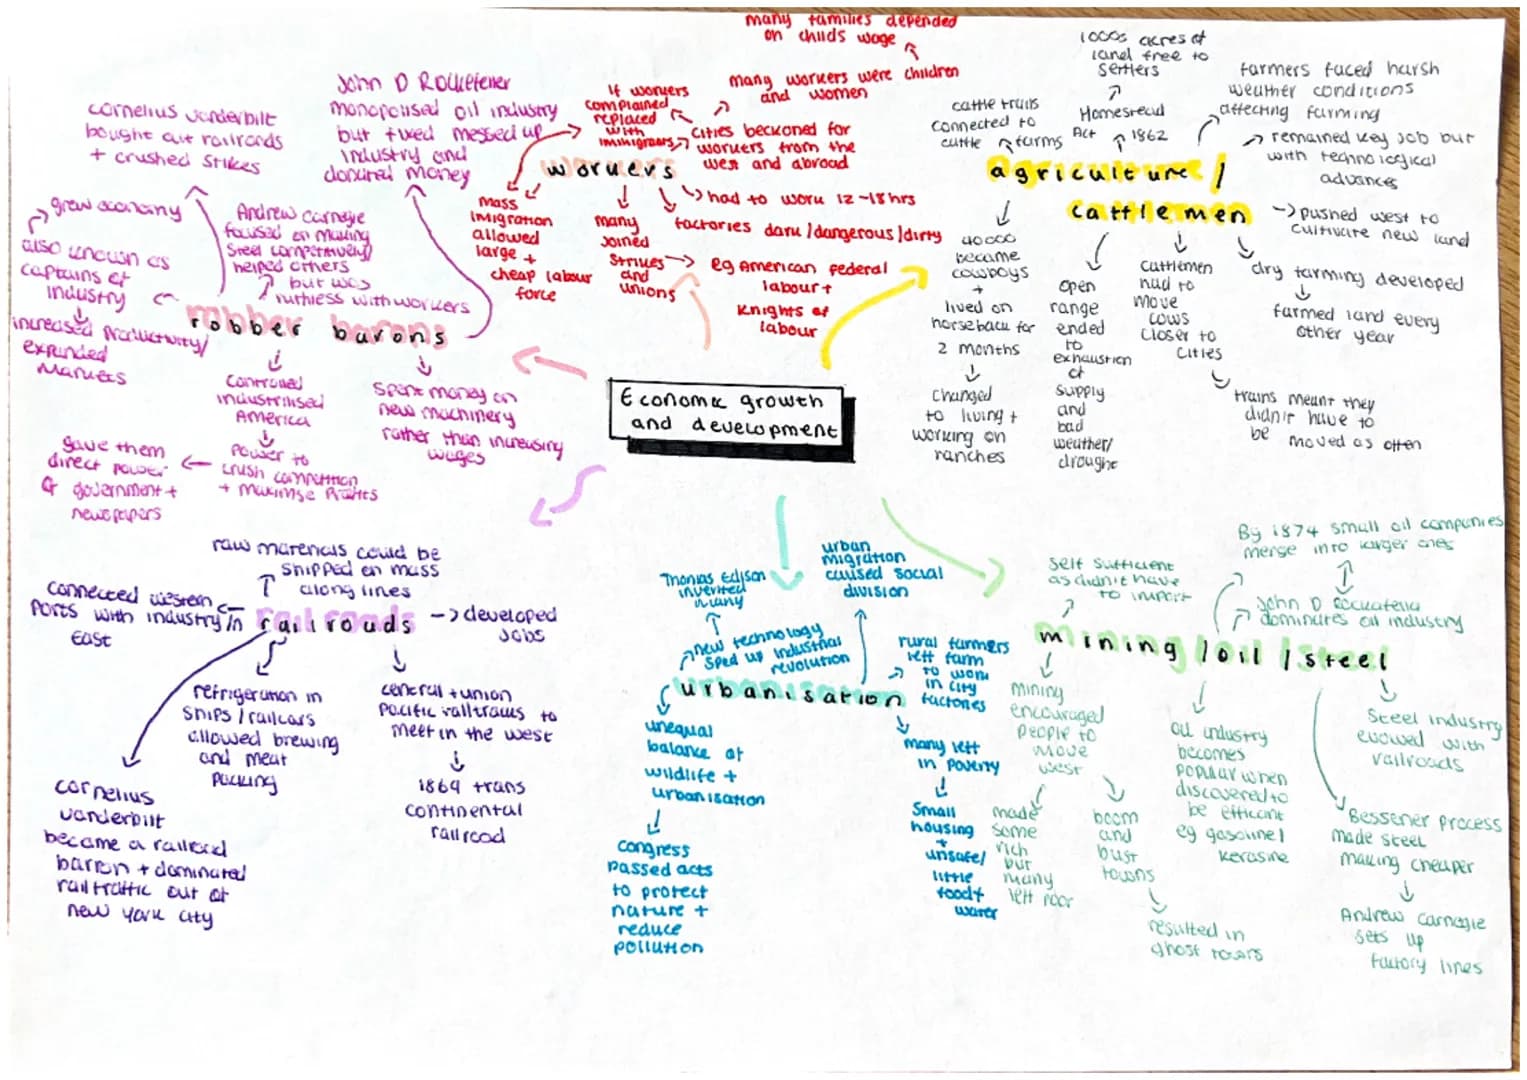 Economic growth
and development
workers
many families depended
on childs wage
many workers were children
and women
If workers
complained
replaced
with
immigrants
Cities beckoned for
workers from the
west and abroad
had to work 12-18hrs
factories dark/dangerous/dirty
many
joined
strikes
and
unions
eg American federal
labour +
Knights of
labour
mass
imigration
allowed
large +
cheap labour
force
agriculture/
cattlemen
cattle trails
connected to
cattle farms
1000s acres of
land free to
settlers
Homestead
Act 1862
farmers faced harsh
weather conditions
affecting farming
remained key job but
with technological
advances
pushed west to
cultivate new land
dry farming developed
farmed land every
other year
cattlemen
had to
move
cows
closer to
cities
trains meant they
didn't have to
be moved as often
open
range
ended
to
exhaustion
of
supply
and
bad
weather/
drought
40000
became
cowboys
+
lived on
horseback for
2 months
changed
to living +
working on
ranches
robber barons
cornelius vanderbilt
bought out railroads
+ crushed strikes
John D Rockefeller
monopolised oil industry
but fixed messed up
industry and
donated money
Andrew carnegie
focused on making
steel competitively/
helped others
but was
ruthless with workers
grew economy
also known as
captains of
industry
increased productivity/
expanded
markets
controlled
industrilised
America
power to
crush competition
+ maximise profits
gave them
direct power
of government +
newspapers
spent money on
new machinery
rather than increasing
wages
railroads
raw materials could be
shipped en mass
along lines
connected western
ports with industry in
East
developed
jobs
refrigeration in
ships/railcars
allowed brewing
and meat
packing
central + union
pacific railtracks to
meet in the west
1869 trans
continental
railroad
cornelius
vanderbilt
became a railroad
barron + dominated
rail traffic out of
new york city
urbanisation
Thomas Edison
invented
many
new technology
sped up industrial
revolution
urban
migration
caused social
division
rural farmers
left farm
to work
in city
factories
many left
in poverty
Small
housing
+
unsafe/
little
food +
water
unequal
balance of
wildlife +
urbanisation
congress
passed acts
to protect
nature +
reduce
pollution
mining/oil/steel
self sufficient
as didn't have
to import
By 1874 small oil companies
merge into larger ones
John D Rockafella
dominates oil industry
mining
encouraged
people to
move
west
made
some
rich
but
many
left poor
boom
and
bust
towns
resulted in
ghost towns
oil industry
becomes
popular when
discovered to
be efficient
eg gasoline/
kerasine
Steel industry
evolved with
railroads
Bessener process
made steel
making cheaper
Andrew Carnegie
sets up
factory lines